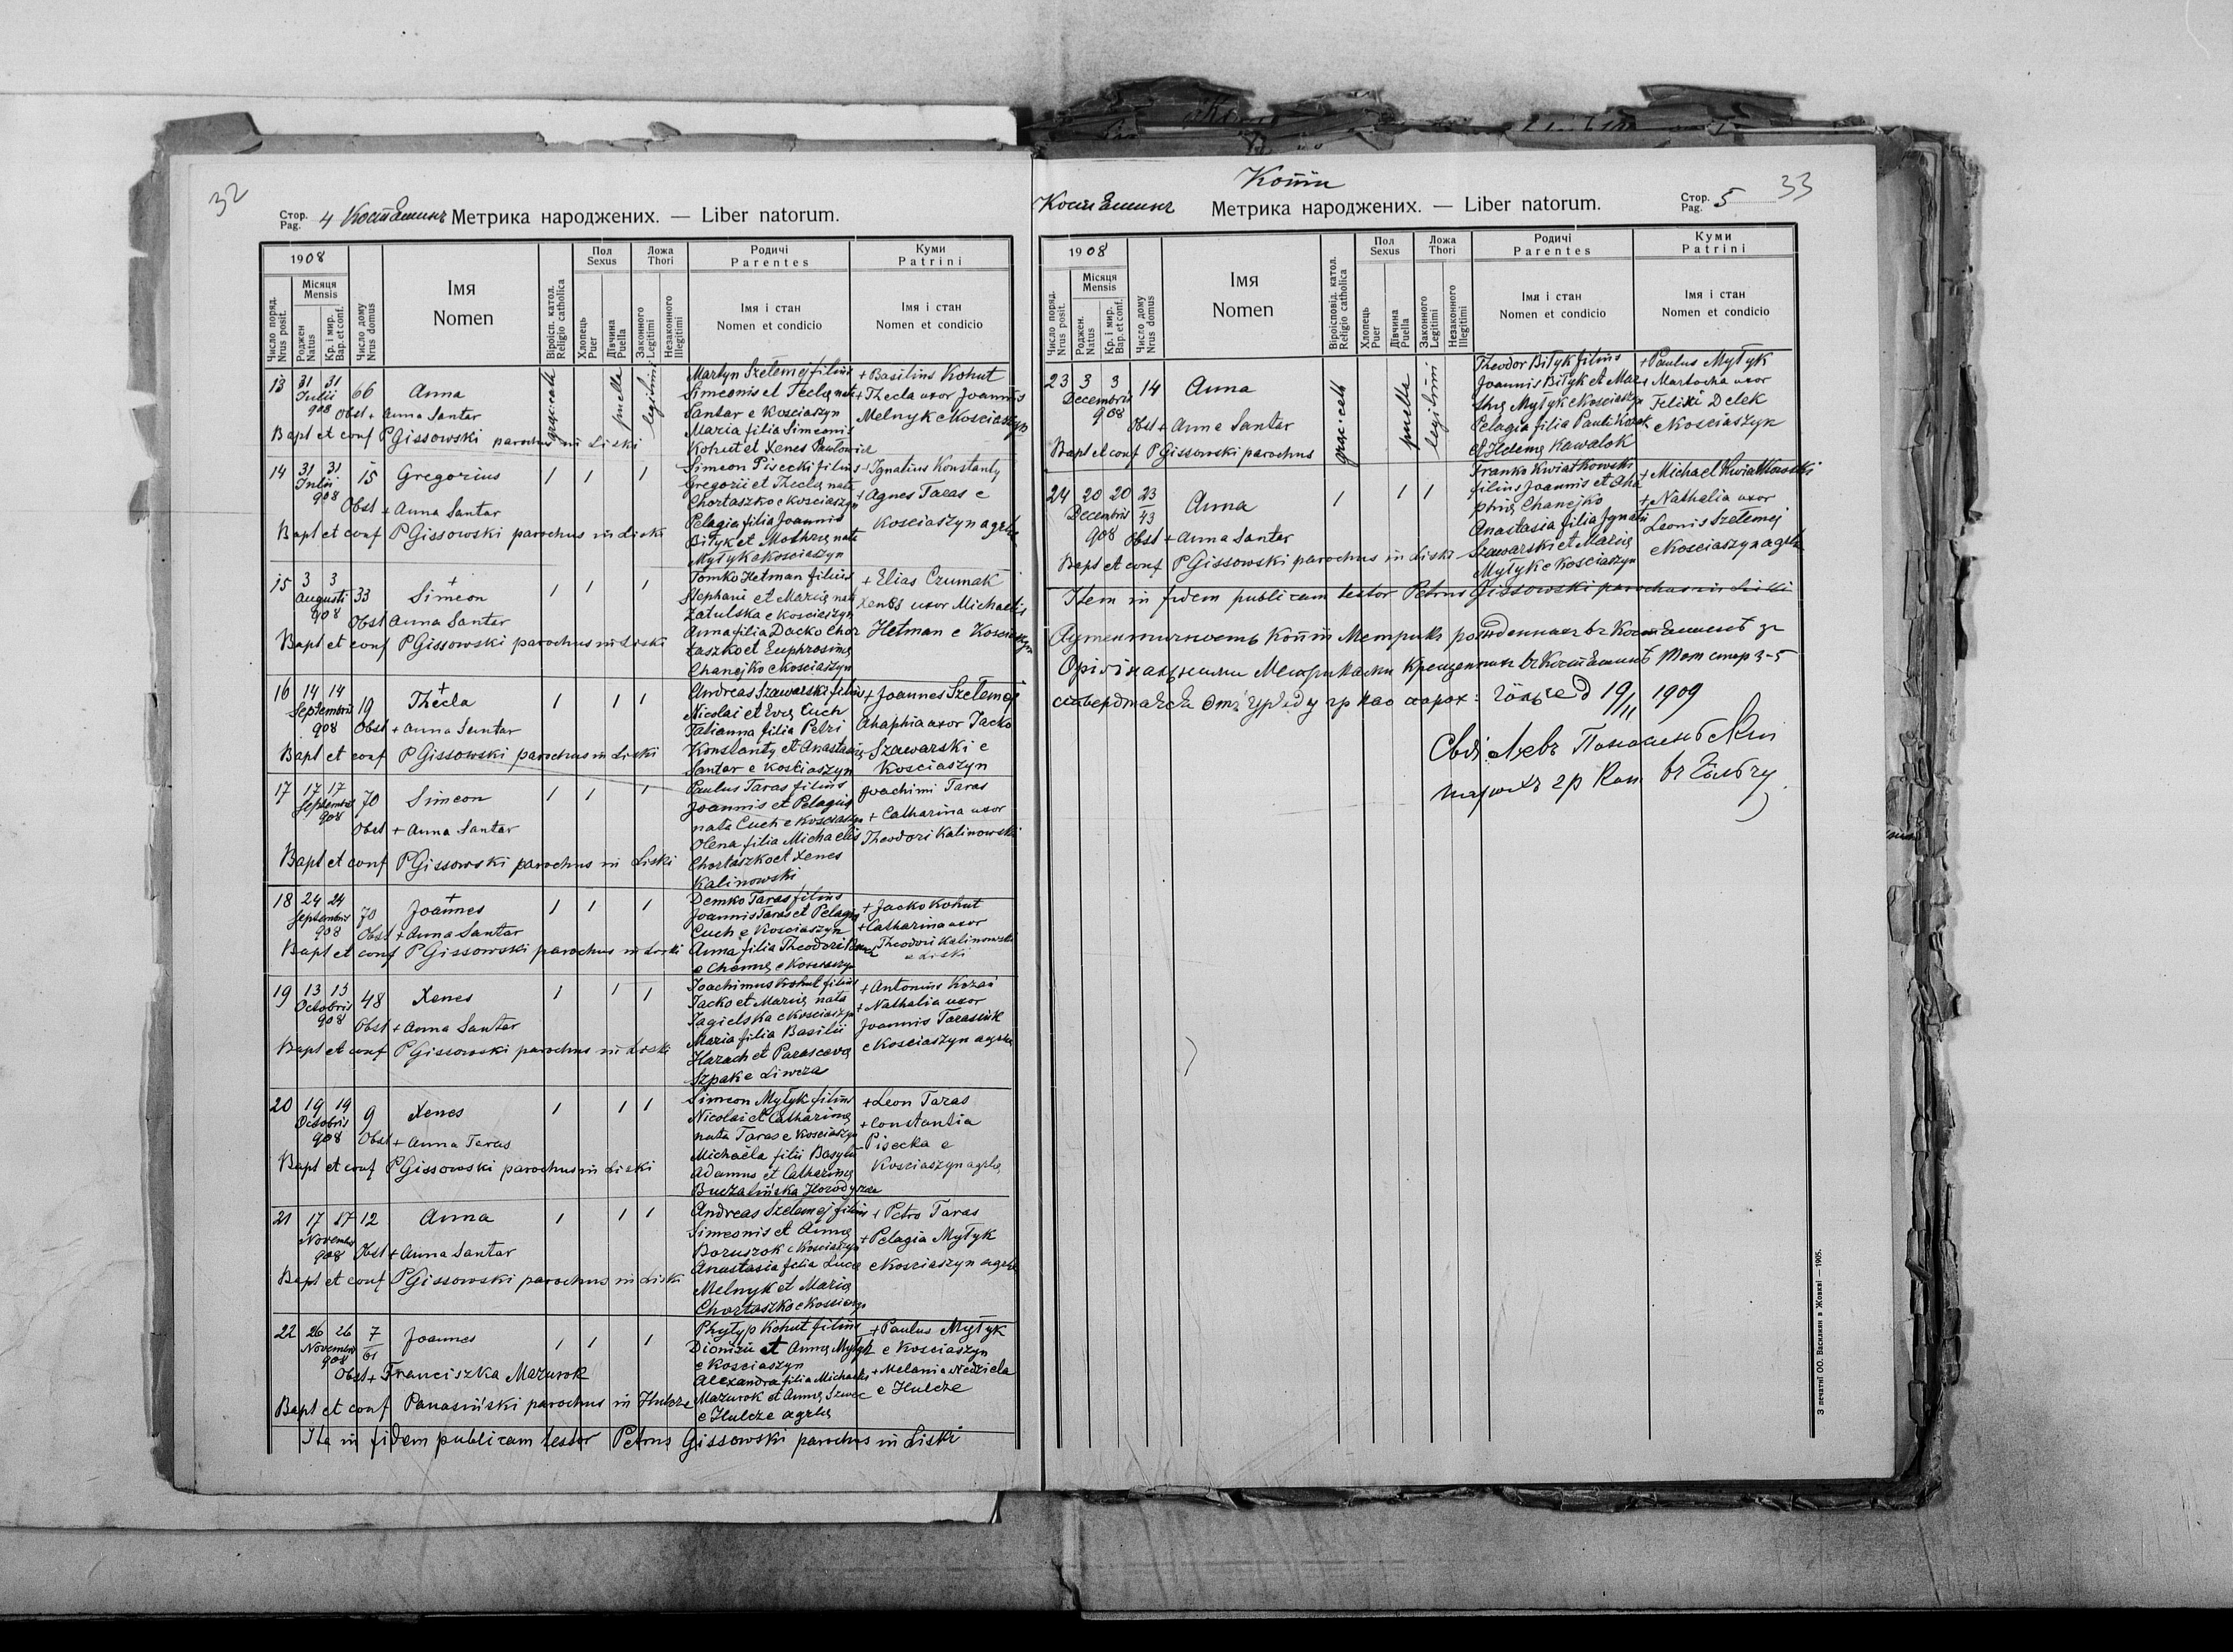 32
Стор.
Pag. 4 Костяшинъ Метрика народжених. — Liber natorum.
1908
Число поряд.
Nrus posit.
Місяця
Mensis
Роджен
Natus
Кр. і мир.
Bap. et conf.
Число дому
Nrus domus
Імя
Nomen
Віроісп. катол.
Religio catholica
Пол
Sexus
Хлопець
Puer
Дівчина
Puella
Ложа
Thori
Законного
Legitimi
Незаконного
Illegitimi
Родичі
Parentes
Імя і стан
Nomen et condicio
Куми
Patrini
Імя і стан
Nomen et condicio
13 31 31 Julii 908 66 Anna graec: cath puella legitimi
Obst + Anna Santar
Bapt et conf P Gissowski parochus in Liski
Martyn Szelemej filius
Simeonis et Teclę nata
Santar e Kosciaszyn
Maria filia Simeonis
Kohut et Xenes
+ Basilius Kohut
+ Thecla uxor Joannis
Melnyk e Kosciaszyn
14 31 31 Julii 908 15 Gregorius 1 1 1
Obst + Anna Santar
Bapt et conf P Gissowski parochus in Liski
Simeon Pisecki filius
Gregorii et Theclę nata
Chortaszko e Kosciaszyn
Pelagia filia Joannis
Bityk et nata
Mytyk e Kosciaszyn
+ Ignatius Konstanty
+ Agnes Taras e
Kosciaszyn agrlę
15 3 3 Augusti 908 33 + Simeon 1 1 1
Obst Anna Santar
Bapt et conf P Gissowski parochus in Liski
Tomko Hetman filius
Stephani et Marię nata
Zatulska e Kosciaszyn
Anna filia Dacko Chor
taszko et Euphrosinę
Chanejko e Kosciaszyn
+ Elias Czumak
Xenes uxor Michaelis
Hetman e Kosciaszyn
16 14 14 Septembris 908 19 + Thecla 1 1 1
Obst + Anna Santar
Bapt et conf P Gissowski parochus in Liski
Andreas Szawarski filius
Nicolai et Evę Cuch
Tatianna filia Petri
Konstanty et Anastasię
Santar e Kosciaszyn
+ Joannes Szelemej
Ahaphia uxor Jacko
Szawarski e
Kosciaszyn
17 17 17 Septembris 908 70 Simeon 1 1 1
Obst + Anna Santar
Bapt et conf P Gissowski parochus in Liski
Paulus Taras filius
Joannis et Pelagię
nata Cuch e Kosciaszyn
Olena filia Michaelis
Chortaszko et Xenes
Kalinowski
Joachimi Taras
+ Catharina uxor
Theodori Kalinowski
18 24 24 Septembris 908 70 + Joannes 1 1 1
Obst + Anna Santar
Bapt et conf P Gissowski parochus in Liski
Demko Taras filius
Joannis Taras et Pelagię
Cuch e Kosciaszyn
Anna filia Theodori
e Kosciaszyn
+ Jacko Kohut
+ Catharina uxor
Theodori Kalinowski
e Liski
19 13 13 Octobris 908 48 Xenes 1 1 1
Obst + Anna Santar
Bapt et conf P Gissowski parochus in Liski
Joachimus Kohut filius
Jacko et Marię nata
Jagielska e Kosciaszyn
Maria filia Basilii
Harach et Parascevę
Szpak e Liwcza
+ Antonius Kozań
+ Nathalia uxor
Joannis Tarasiuk
e Kosciaszyn agrlę
20 19 19 Octobris 908 9 Xenes 1 1 1
Obst + Anna Taras
Bapt et conf P Gissowski parochus in Liski
Simeon Mytyk filius
Nicolai et Catharinę
nata Taras e Kosciaszyn
Michaela filii Basylii
Adamus et Catharinę
+ Leon Taras
+ Constantia
Pisecka e
Kosciaszyn agrlę
21 17 17 Novembris 908 12 Anna 1 1 1
Obst + Anna Santar
Bapt et conf P Gissowski parochus in Liski
Andreas Szelemej filius
Simeonis et Annę
Boruszok e Kosciaszyn
Anastasia filia Lucę
Melnyk et Marię
Chortaszko e Kosciaszyn
+ Petro Taras
+ Pelagia Mytyk
e Kosciaszyn agrlę
22 26 26 Novembris 908 7/61 Joannes 1 1 1
Obst + Franciszka Mazurok
Bapt et conf Panasiński parochus in Hulcze
Phytyp Kohut filius
Dionizii et Annę Mytyk
e Kosciaszyn
Alexandra filia Michaelis
Mazurok et Annę Szwec
e Hulcze agrlę
+ Paulus Mytyk
e Kosciaszyn
+ Melania Nedziela
e Hulcze
Ita in fidem publicam testor Petrus Gissowski parochus in Liski
Копія
Костяшинъ Метрика народжених. — Liber natorum. Стор.
Pag. 5 33
1908
Число поряд.
Nrus posit.
Місяця
Mensis
Роджен.
Natus
Кр. і мир.
Bap. et conf.
Число дому
Nrus domus
Імя
Nomen
Віроісповід. катол.
Religio catholica
Пол
Sexus
Хлопець
Puer
Дівчина
Puella
Ложа
Thori
Законного
Legitimi
Незаконного
Illegitimi
Родичі
Parentes
Імя і стан
Nomen et condicio
Куми
Patrini
Імя і стан
Nomen et condicio
23 3 3 Decembris 908 14 Anna graec: cath puella legitimi
Obst + Anna Santar
Bapt et conf P Gissowski parochus
Theodor Bityk filius
Joannis Bityk et Mar
Mytyk e Kosciaszyn
Pelagia filia Pauli Kozak
et Helenę Kawalok
+ Paulus Mytyk
+ Martocha uxor
Felixi Delek
e Kosciaszyn
24 20 20 Decembris 908 23/43 Anna 1 1 1
Obst + Anna Santar
Bapt et conf P Gissowski parochus in Liski
Franko Kwiatkowski
filius Joannis et Aha
phię Chanejko
Anastasia filia Ignatii
Szawarski et Marię
Mytyk e Kosciaszyn
+ Michael Kwiatkowski
+ Nathalia uxor
Leonis Szelemej
e Kosciaszyn agrlę
Item in fidem publicam testor Petrus Gissowski parochus in Liski
Аутентичность копіи Метрикъ рожденныхъ въ Костяшинѣ за
Метриками Крещенныхъ въ Костяшинѣ Том стор 3-5
стверджаеся отъ уряду гр кат парох: д 19/II 1909
Свящ Левъ Панасиньскій
парохъ гр кат въ
З печатні ОО. Василиян в Жовкві — 1905.